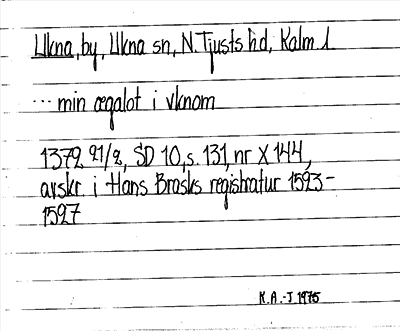 Ukna, by, Ukna sn, N. Tjusts hd, Kalm. l.
... min ægalot i vknom
1379 21/2, SD 10, s. 131, nr X 144,
avskr. i Hans Brasks registratur 1523-
1527
K.A.-J 1975